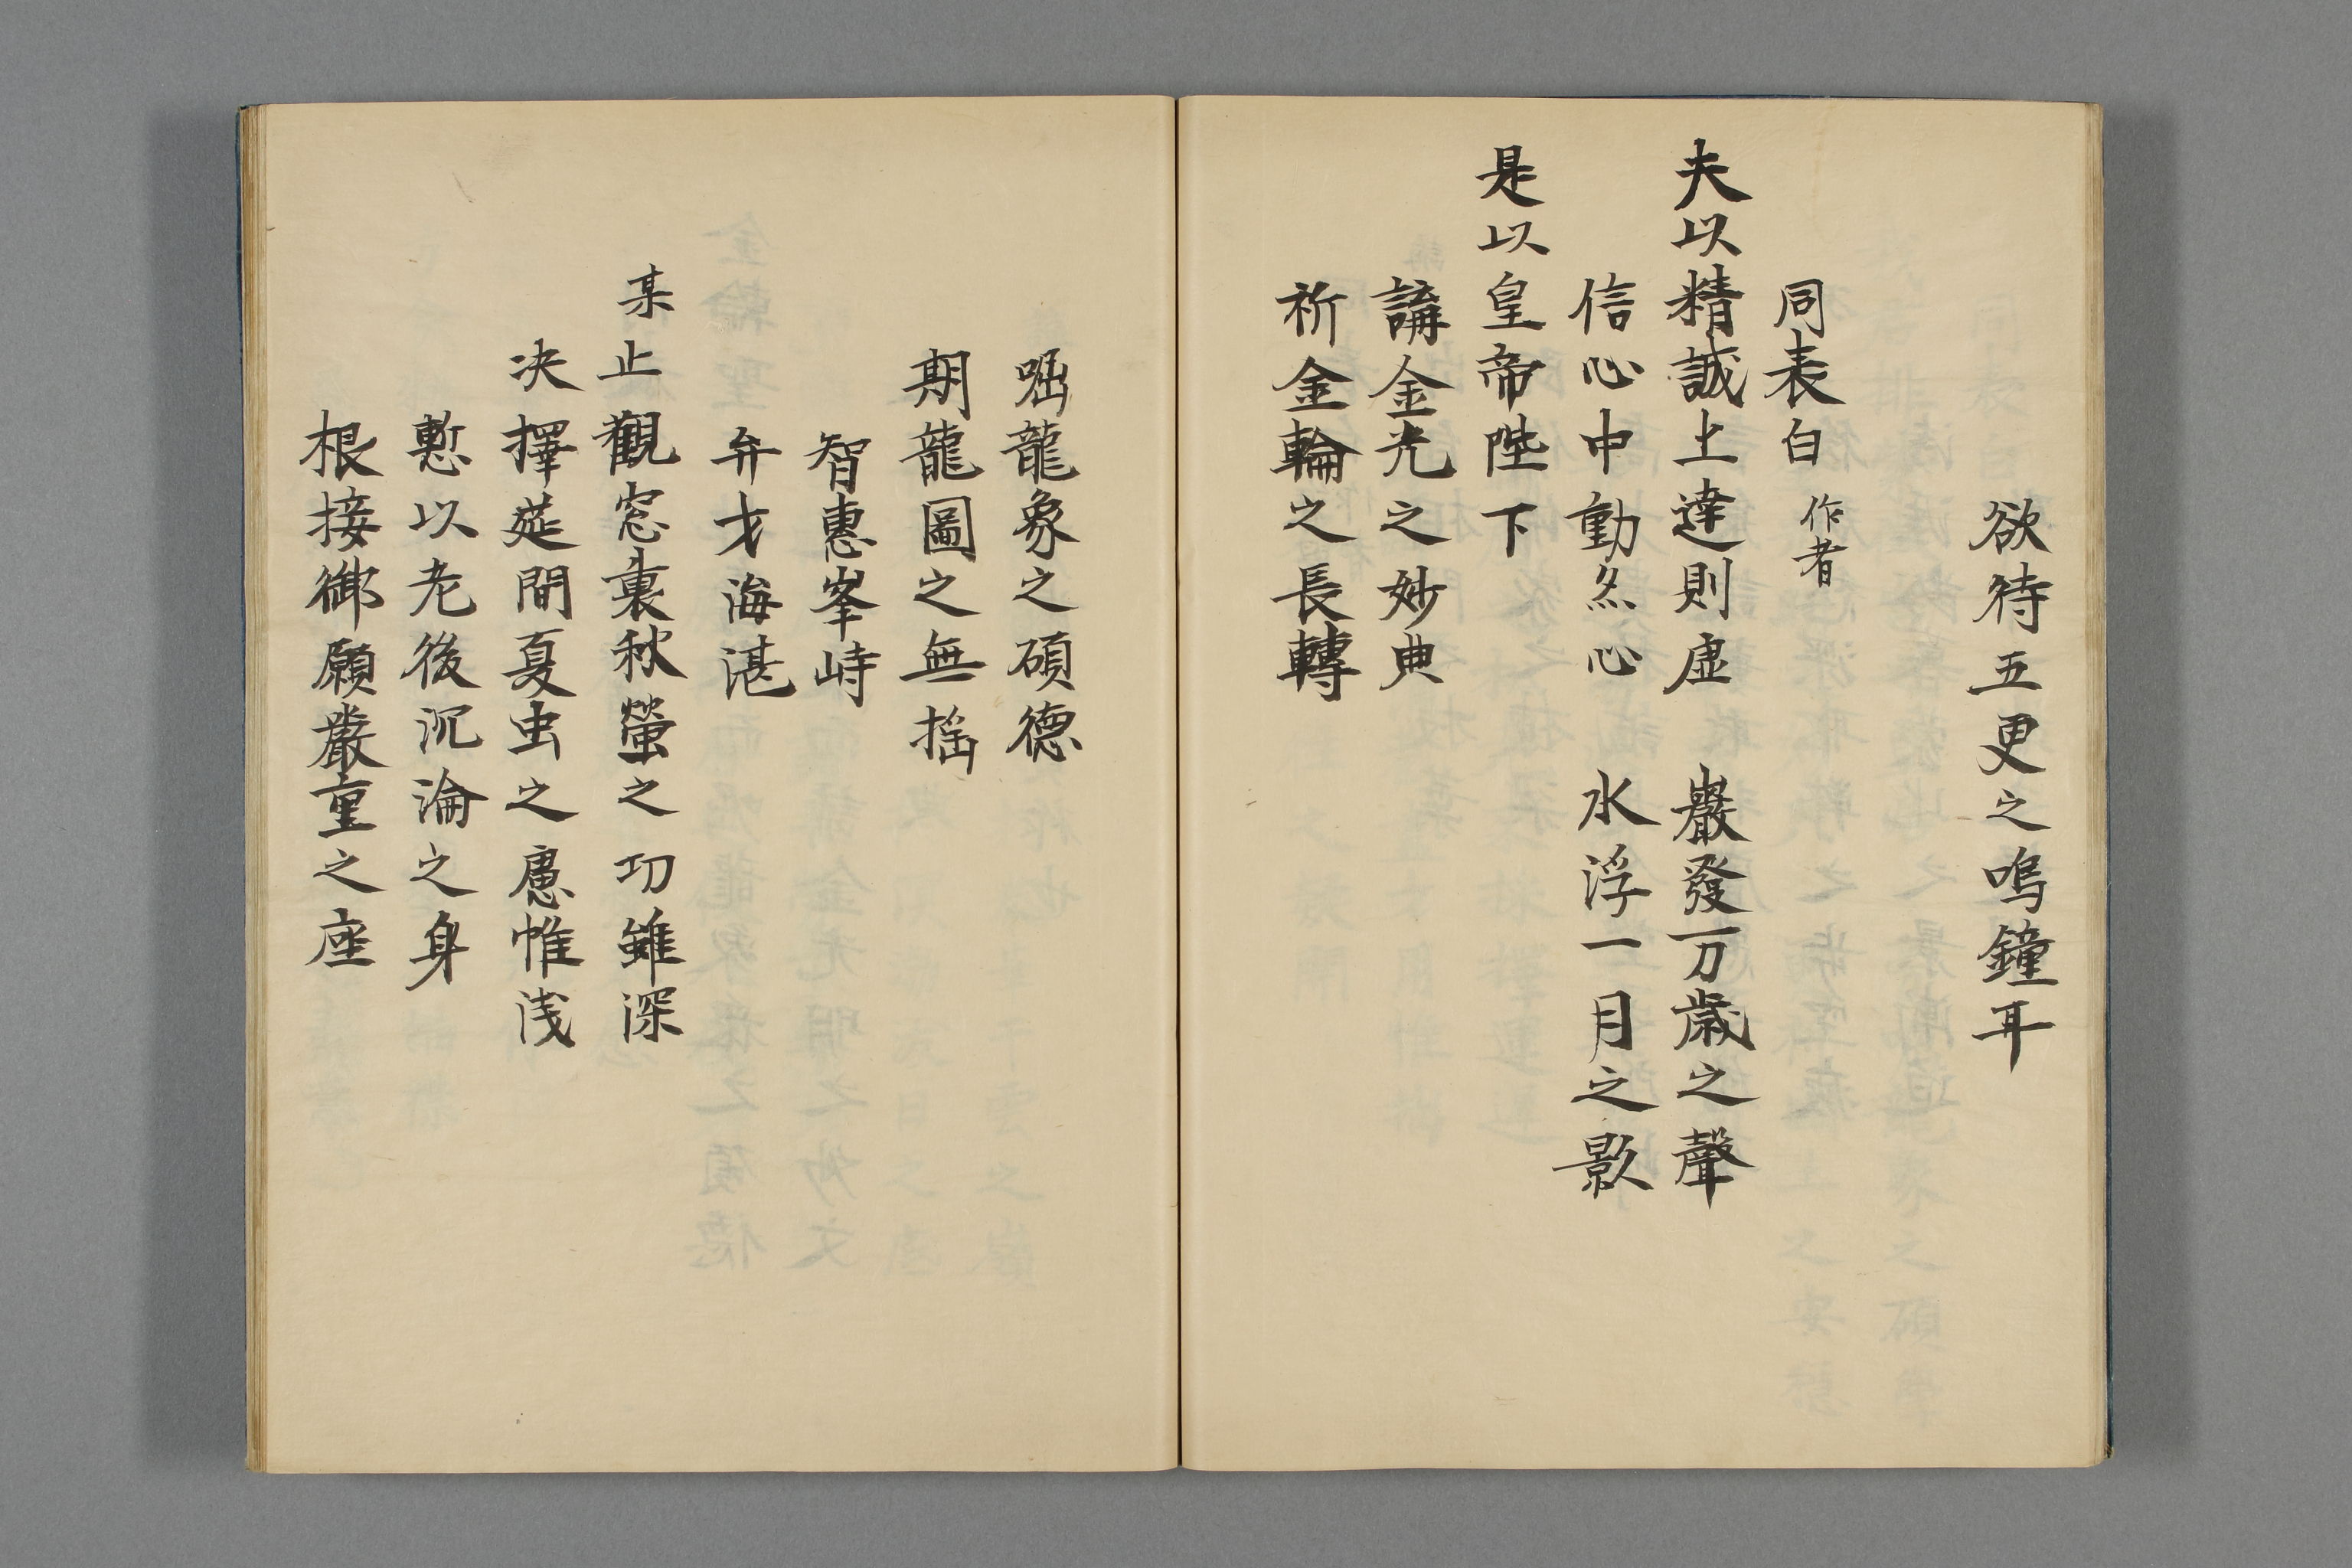 欲待五更之鳴鐘耳
同表白 作者
夫以精誠上達則虚 巖發万歳之聲
信心中動忽心 水浮一月之影
是以皇帝陛下
講金光之妙典
祈金輪之長轉
龍象之碩徳
期龍圖之無揺
智惠峯峙
弁才海湛
某止觀窓裏秋螢之功雖深
决擇莚間夏虫之慮惟浅
慙以老後沉淪之身
根接御願嚴重之座